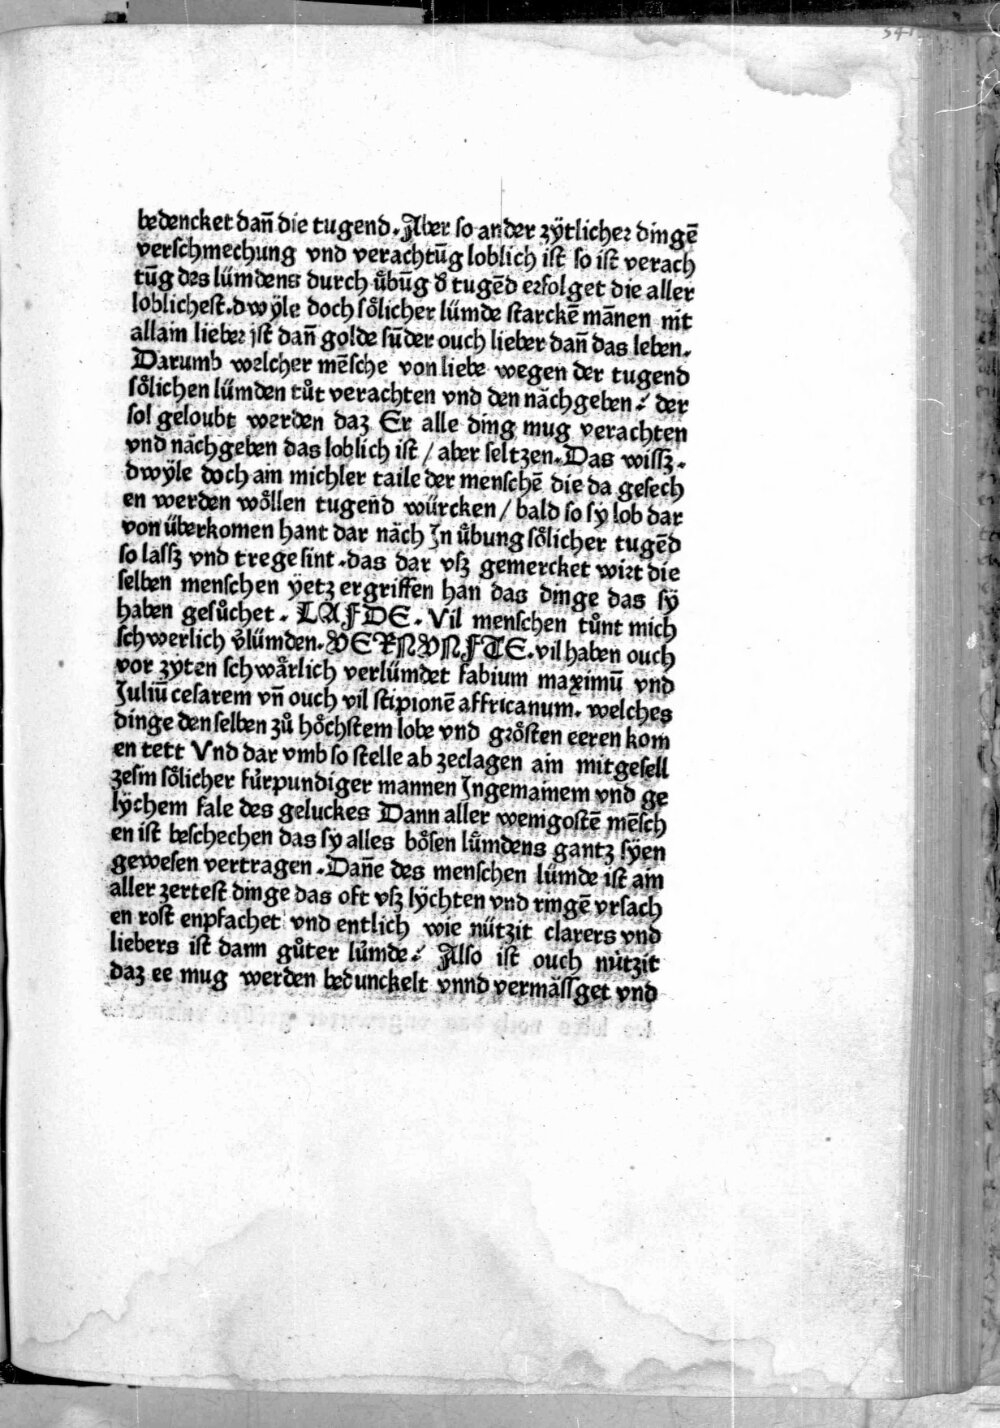 541
bedencket dañ die tugend. Aber so ander zÿtlicher dingē
verschmechung vnd verachtūg loblich ist so ist verach
tūg des lümdens durch uͤbūg d᷑ tugēd erfolget die aller
loblichest. dwÿle doch soͤlicher lümde starckē mānen nit
allain lieber jst dañ golde sūder ouch lieber dañ das leben.
Darumb welcher mēsche von liebe wegen der tugend
soͤlichen lümden tuͦt verachten vnd den nāchgeben / der
sol geloubt werden daz Er alle ding mug verachten
vnd nāchgeben das loblich ist / aber seltzen. Das wissz.
dwÿle doch ain michler taile der menschē die da gesech
en werden woͤllen tugend würcken / bald so sÿ lob dar
von überkomen hant dar nāch Jn uͤbung soͤlicher tugēd
so lassz vnd trege sint. das dar vsz gemercket wirt die
selben menschen ÿetz ergriffen han das dinge das sÿ
haben gesuͦchet. LAFDE. Vil menschen tuͦnt mich
schwerlich v᷑lümden. VERNVNFTE. vil haben ouch
vor zyten schwaͤrlich verlümdet fabium maximū vnd
Juliū cesarem vñ ouch vil stipionē affricanum. welches
dinge den selben zuͦ hoͤchstem lobe vnd groͤsten eeren kom
en tett Vnd dar vmb so stelle ab zeclagen ain mitgesell
zesin soͤlicher fuͤrpundiger mannen Jngemainem vnd ge
lÿchem fale des geluckes Dann aller wenigostē mēsch
en ist beschechen das sÿ alles boͤsen luͤmdens gantz sÿen
gewesen vertragen. Dañe des menschen lümde ist ain
aller zertest dinge das oft vsz lÿchten vnd ringē vrsach
en rost enpfachet vnd entlich wie nützit clarers vnd
liebers ist dann guͦter luͤmde / Also ist ouch nützit
daz ee mug werden bedunckelt vnnd vermāssget vnd